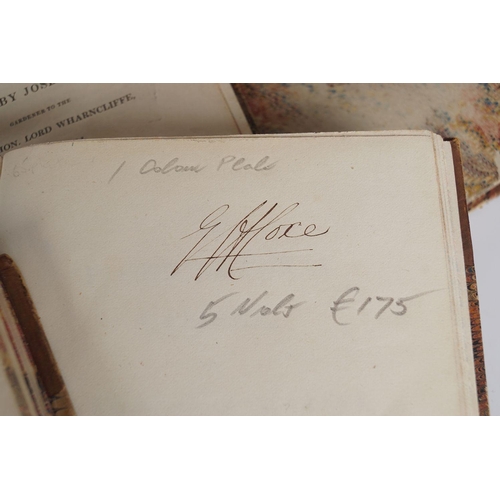 BY JOS
GARDENER TO THE
HON. LORD WHARNCLIFFE.
1 Colour Plate
5 Vols £175